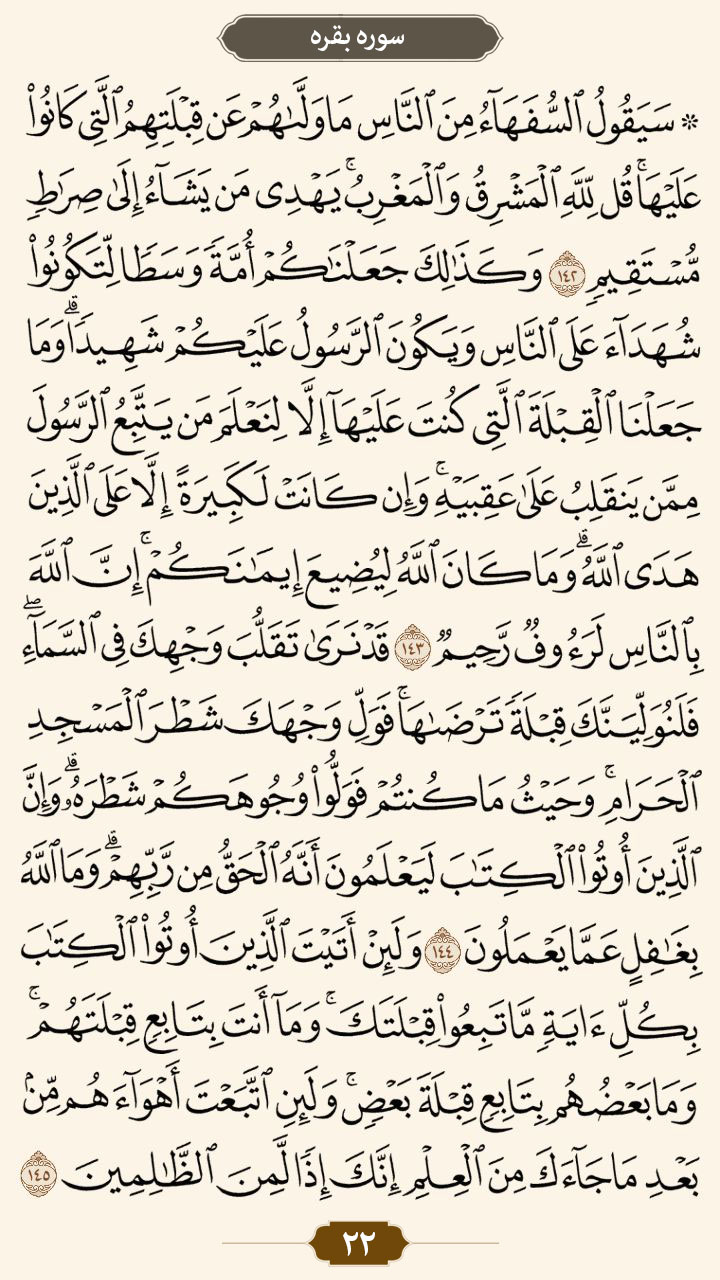 سوره بقره
۞ سَيَقُولُ ٱلسُّفَهَآءُ مِنَ ٱلنَّاسِ مَا وَلَّىٰهُمۡ عَن قِبۡلَتِهِمُ ٱلَّتِي كَانُواْ
عَلَيۡهَاۚ قُل لِّلَّهِ ٱلۡمَشۡرِقُ وَٱلۡمَغۡرِبُۚ يَهۡدِي مَن يَشَآءُ إِلَىٰ صِرَٰطٖ
مُّسۡتَقِيمٖ ١٤٢ وَكَذَٰلِكَ جَعَلۡنَٰكُمۡ أُمَّةٗ وَسَطٗا لِّتَكُونُواْ
شُهَدَآءَ عَلَى ٱلنَّاسِ وَيَكُونَ ٱلرَّسُولُ عَلَيۡكُمۡ شَهِيدٗاۗ وَمَا
جَعَلۡنَا ٱلۡقِبۡلَةَ ٱلَّتِي كُنتَ عَلَيۡهَآ إِلَّا لِنَعۡلَمَ مَن يَتَّبِعُ ٱلرَّسُولَ
مِمَّن يَنقَلِبُ عَلَىٰ عَقِبَيۡهِۚ وَإِن كَانَتۡ لَكَبِيرَةً إِلَّا عَلَى ٱلَّذِينَ
هَدَى ٱللَّهُۗ وَمَا كَانَ ٱللَّهُ لِيُضِيعَ إِيمَٰنَكُمۡۚ إِنَّ ٱللَّهَ
بِٱلنَّاسِ لَرَءُوفٞ رَّحِيمٞ ١٤٣ قَدۡ نَرَىٰ تَقَلُّبَ وَجۡهِكَ فِي ٱلسَّمَآءِۖ
فَلَنُوَلِّيَنَّكَ قِبۡلَةٗ تَرۡضَىٰهَاۚ فَوَلِّ وَجۡهَكَ شَطۡرَ ٱلۡمَسۡجِدِ
ٱلۡحَرَامِۚ وَحَيۡثُ مَا كُنتُمۡ فَوَلُّواْ وُجُوهَكُمۡ شَطۡرَهُۥۗ وَإِنَّ
ٱلَّذِينَ أُوتُواْ ٱلۡكِتَٰبَ لَيَعۡلَمُونَ أَنَّهُ ٱلۡحَقُّ مِن رَّبِّهِمۡۗ وَمَا ٱللَّهُ
بِغَٰفِلٍ عَمَّا يَعۡمَلُونَ ١٤٤ وَلَئِنۡ أَتَيۡتَ ٱلَّذِينَ أُوتُواْ ٱلۡكِتَٰبَ
بِكُلِّ ءَايَةٖ مَّا تَبِعُواْ قِبۡلَتَكَۚ وَمَآ أَنتَ بِتَابِعٖ قِبۡلَتَهُمۡۚ
وَمَا بَعۡضُهُم بِتَابِعٖ قِبۡلَةَ بَعۡضٖۚ وَلَئِنِ ٱتَّبَعۡتَ أَهۡوَآءَهُم مِّنۢ
بَعۡدِ مَا جَآءَكَ مِنَ ٱلۡعِلۡمِ إِنَّكَ إِذٗا لَّمِنَ ٱلظَّٰلِمِينَ ١٤٥
٢٢